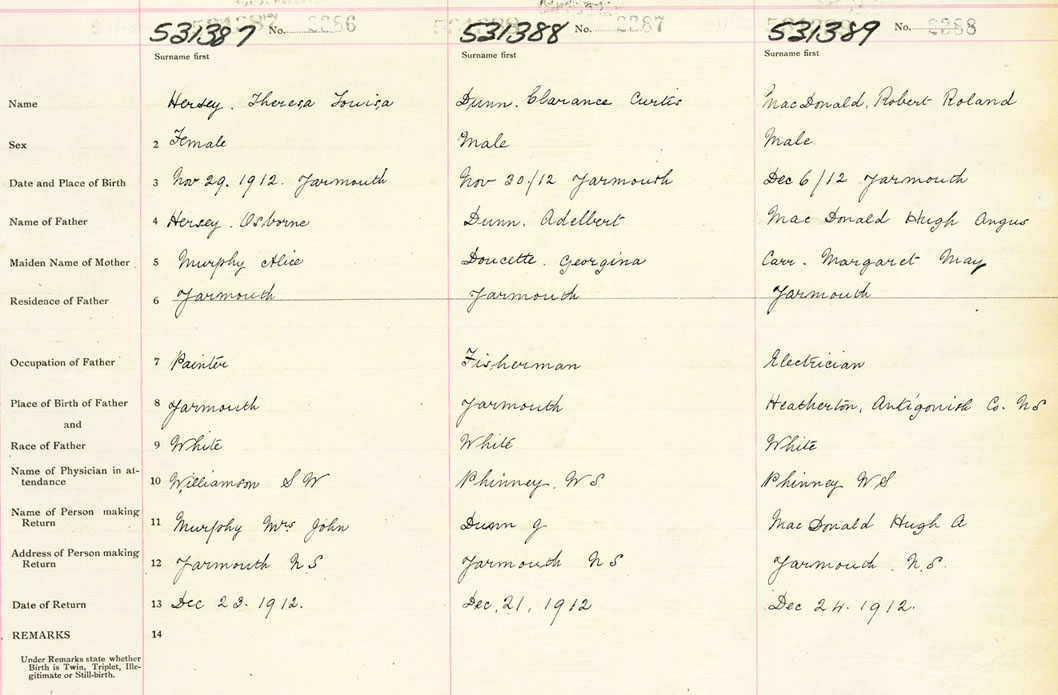 531387 No. 2286 531388 No. 2287 531389 No. 2288
Surname first Surname first Surname first
Name Hersey. Theresa Louisa Dunn. Clarance Curtis MacDonald, Robert Roland
Sex 2 Female Male Male
Date and Place of Birth 3 Nov 29. 1912. Yarmouth Nov 30/12 Yarmouth Dec 6/12 Yarmouth
Name of Father 4 Hersey. Osborne Dunn. Adelbert Mac Donald Hugh Angus
Maiden Name of Mother 5 Murphy Alice Doucette. Georgina Carr. Margaret May
Residence of Father 6 Yarmouth Yarmouth Yarmouth
Occupation of Father 7 Painter Fisherman Electrician
Place of Birth of Father 8 Yarmouth Yarmouth Heatherton, Antigonish Co. NS
and
Race of Father 9 White White White
Name of Physician in at-
tendance 10 Williamson S W Phinney. W S Phinney W S
Name of Person making
Return 11 Murphy Mrs John Dunn G Mac Donald Hugh A
Address of Person making
Return 12 Yarmouth N S Yarmouth N S Yarmouth. N.S.
Date of Return 13 Dec 23. 1912. Dec. 21, 1912 Dec 24. 1912.
REMARKS 14
Under Remarks state whether
Birth is Twin, Triplet, Ille-
gitimate or Still-birth.